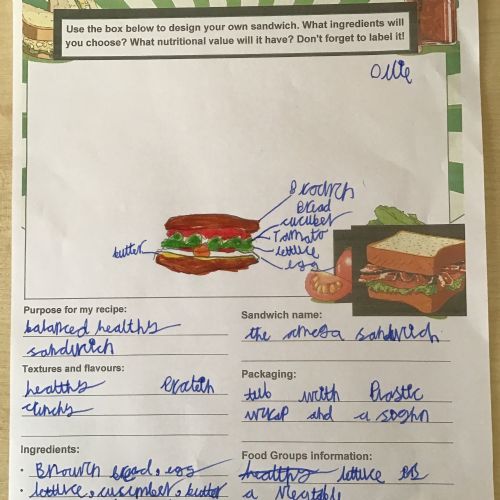 Use the box below to design your own sandwich. What ingredients will
you choose? What nutritional value will it have? Don't forget to label it!
Ollie
Bread
cucuber
Tomato
lettuce
egg
butter
Purpose for my recipe:
balanced healthy
sandwich
Sandwich name:
the omega sandwich
Textures and flavours:
healthy
crunchy
Packaging:
tub with Plastic
wrap and a
Ingredients:
• bread, egg
• lettuce, cucumber, butter
Food Groups information:
healthy lettuce
a vegetable